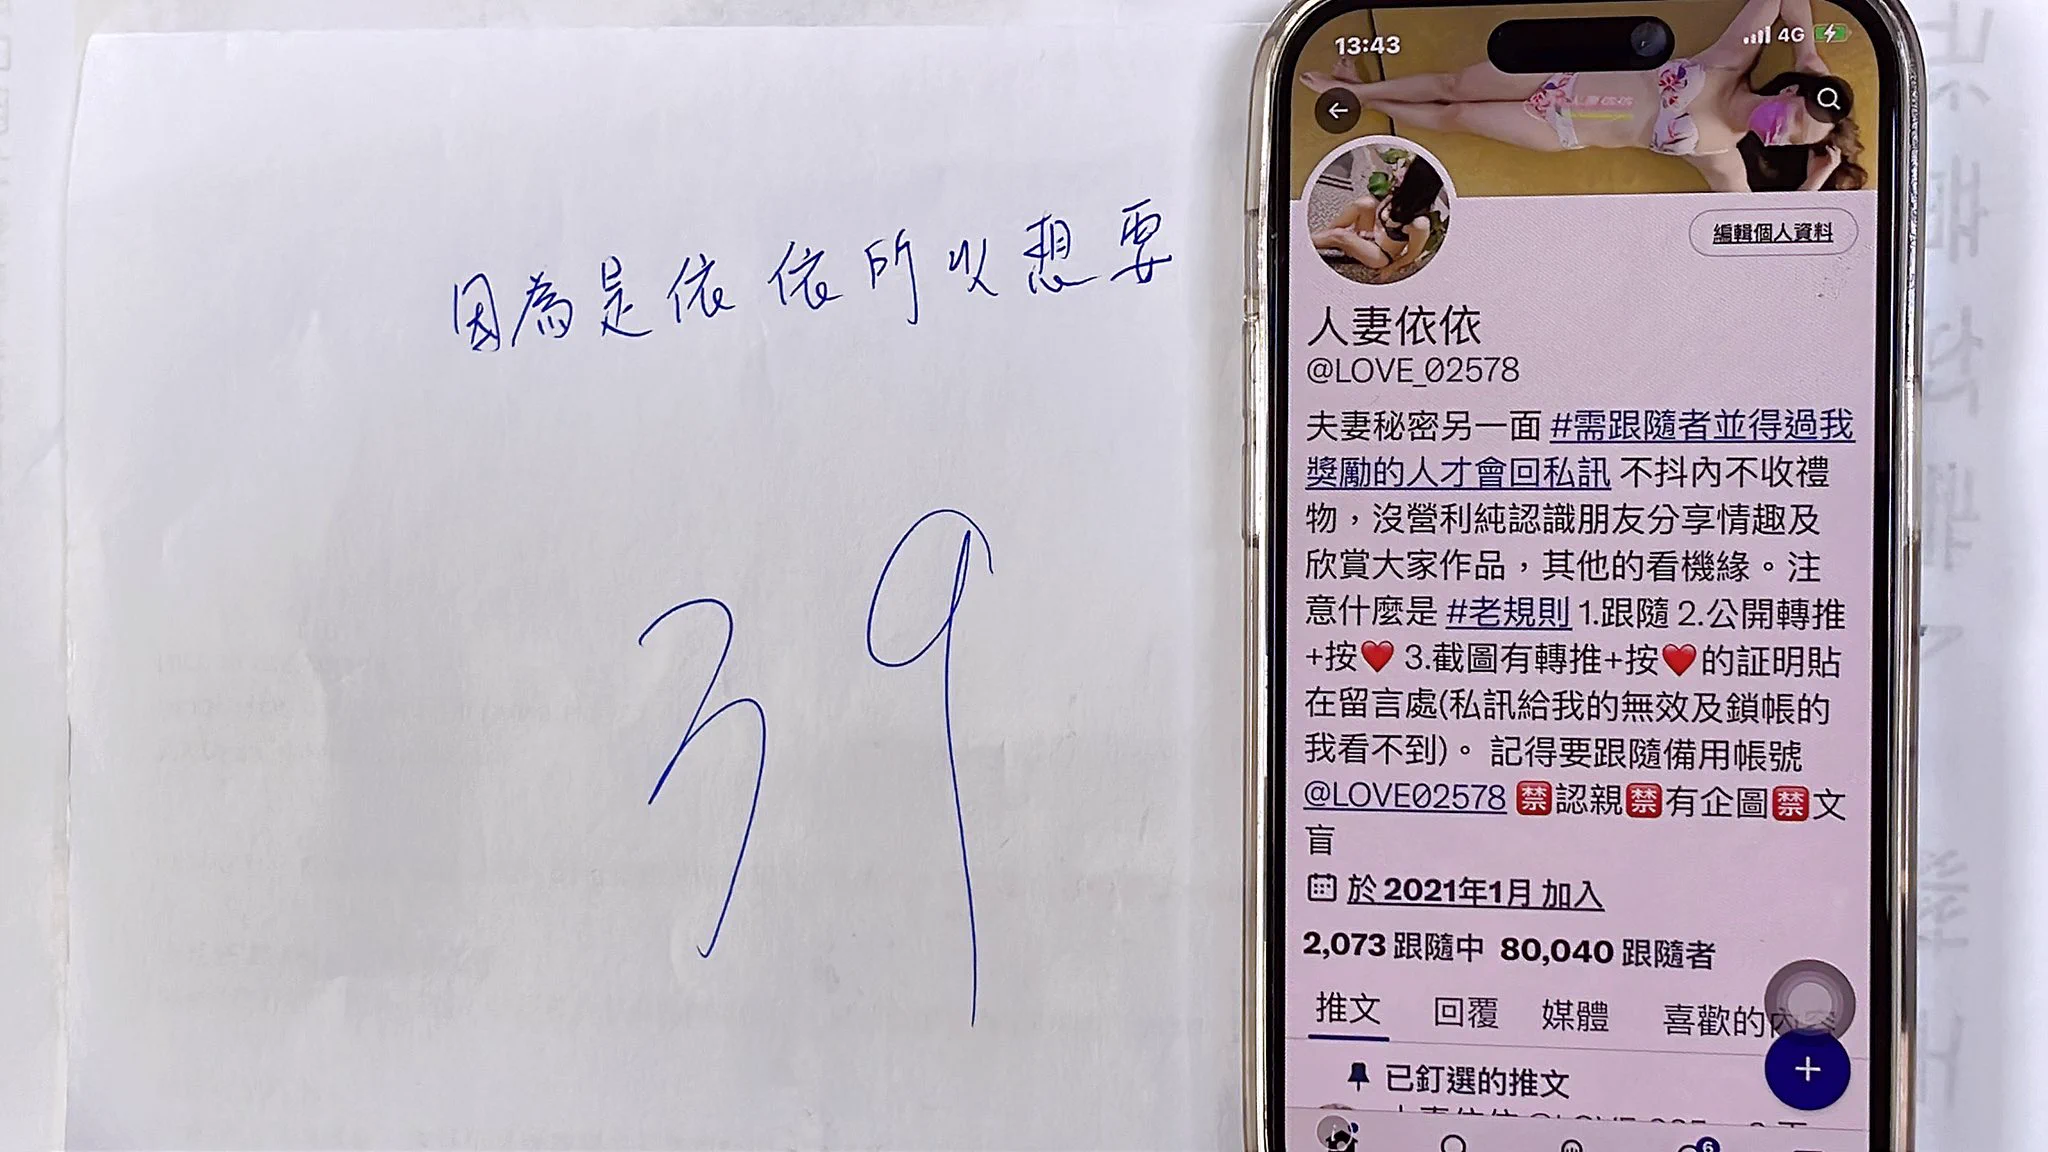 因為是依依所以想要
39
13:43
4G
人妻依依
編輯個人資料
人妻依依
@LOVE_02578
夫妻秘密另一面 #需跟隨者並得過我
獎勵的人才會回私訊 不抖內不收禮
物，沒營利純認識朋友分享情趣及
欣賞大家作品，其他的看機緣。注
意什麼是 #老規則 1.跟隨 2.公開轉推
+按❤️ 3.截圖有轉推+按❤️的証明貼
在留言處(私訊給我的無效及鎖帳的
我看不到)。 記得要跟隨備用帳號
@LOVE02578 🈲認親🈲有企圖🈲文
盲
於 2021年1月 加入
2,073 跟隨中 80,040 跟隨者
推文 回覆 媒體 喜歡的內容
已釘選的推文
6